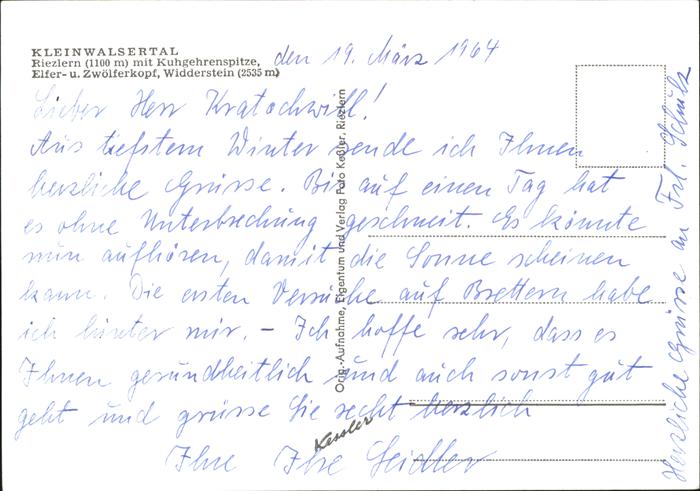 KLEINWALSERTAL
Riezlern (1100 m) mit Kuhgehrenspitze,
Elfer- u. Zwölferkopf, Widderstein (2535 m)
den 19. März 1964
Lieber Herr Kratochwill!
Aus tiefstem Winter sende ich Ihnen
herzliche Grüsse. Bis auf einen Tag hat
es ohne Unterbrechung geschneit. Es könnte
nun aufhören, damit die Sonne scheinen
kann. Die ersten Versuche auf Brettern habe
ich hinter mir. – Ich hoffe sehr, dass es
Ihnen gesundheitlich und auch sonst gut
geht und grüsse Sie recht herzlich
Ihre Ilse Seidler
Herzliche Grüsse an Frl. Schulz
Orig.-Aufnahme, Eigentum und Verlag Foto Keßler, Riezlern
Kessler